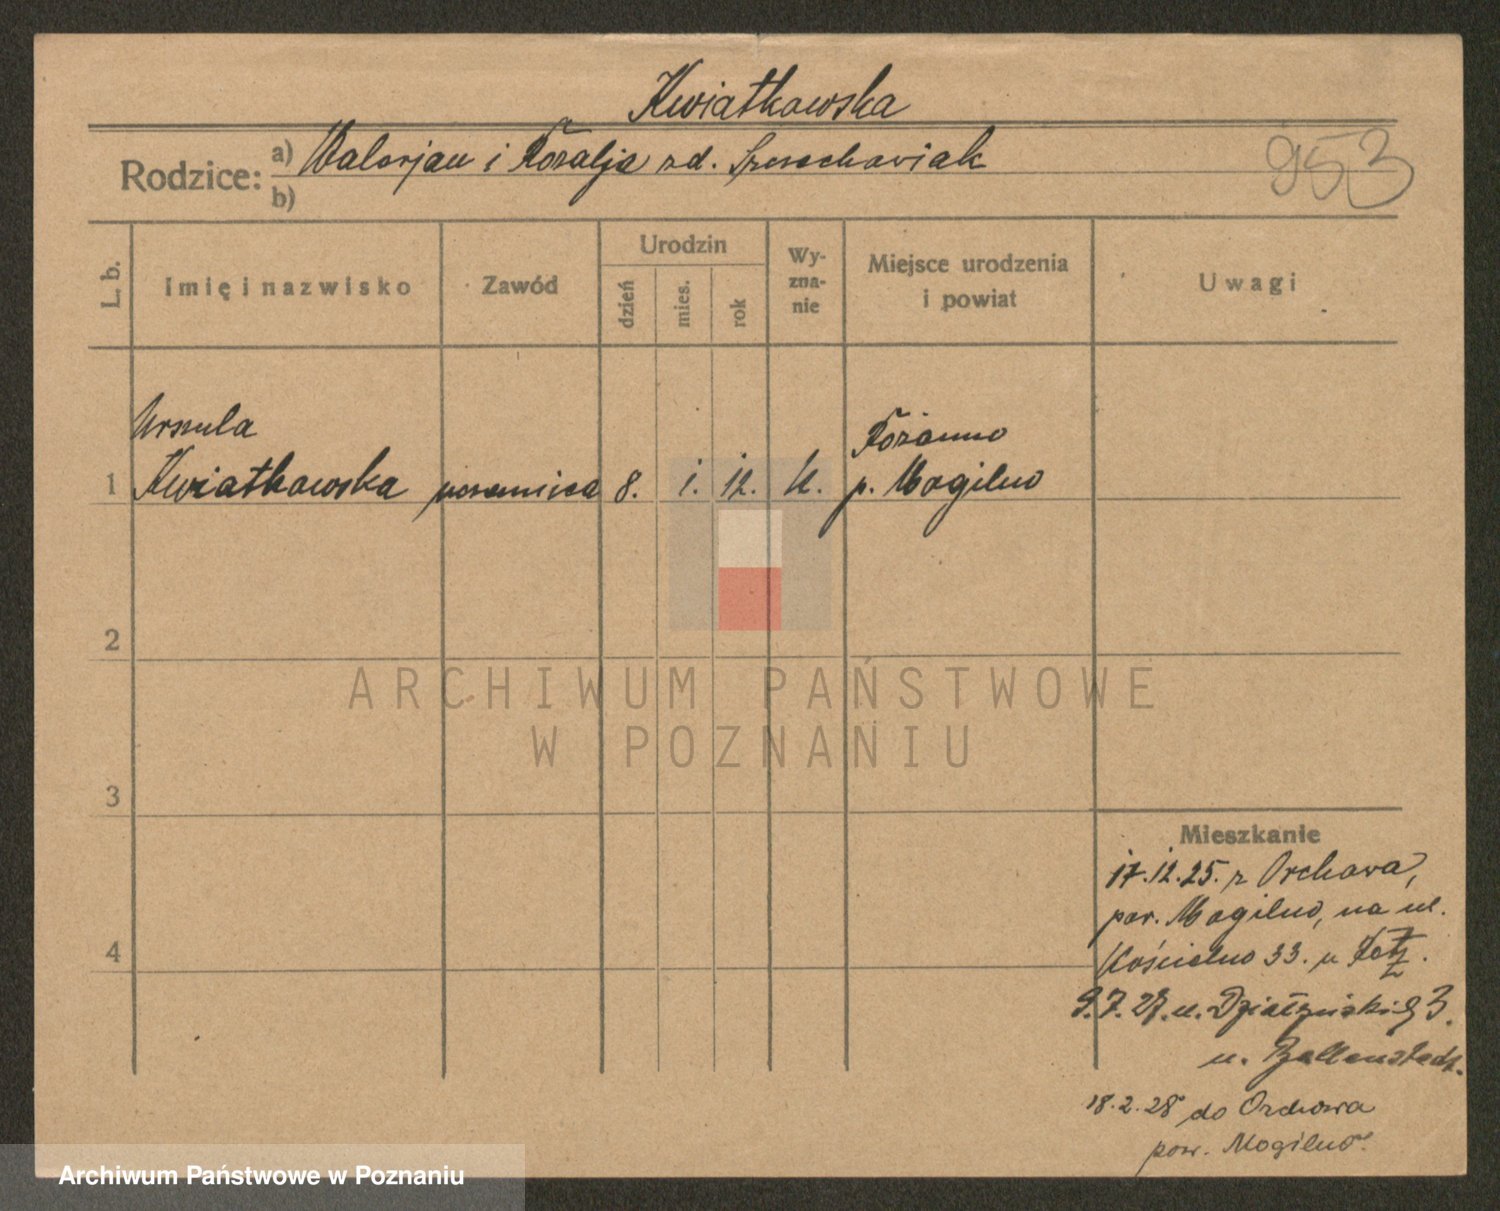 Kwiatkowska
Rodzice: a) Walerjan i Rozalja zd.
b)
953
L. b.
Imię i nazwisko
Zawód
Urodzin
dzień
mies.
rok
Wy-
zna-
nie
Miejsce urodzenia
i powiat
Uwagi
Urszula
1 Kwiatkowska uczennica 8. 1. 12. k.
Różanno
p. Mogilno
2
ARCHIWUM PAŃSTWOWE
W POZNANIU
3
4
Mieszkanie
17.12.25. z Orchowa,
pow. Mogilno, na ul.
Kościelno 33. u
9.7.27. u. Działyńskich 3.
u. Ballenstedt.
18.2.28 do Orchowa
pow. Mogilno.
Archiwum Państwowe w Poznaniu